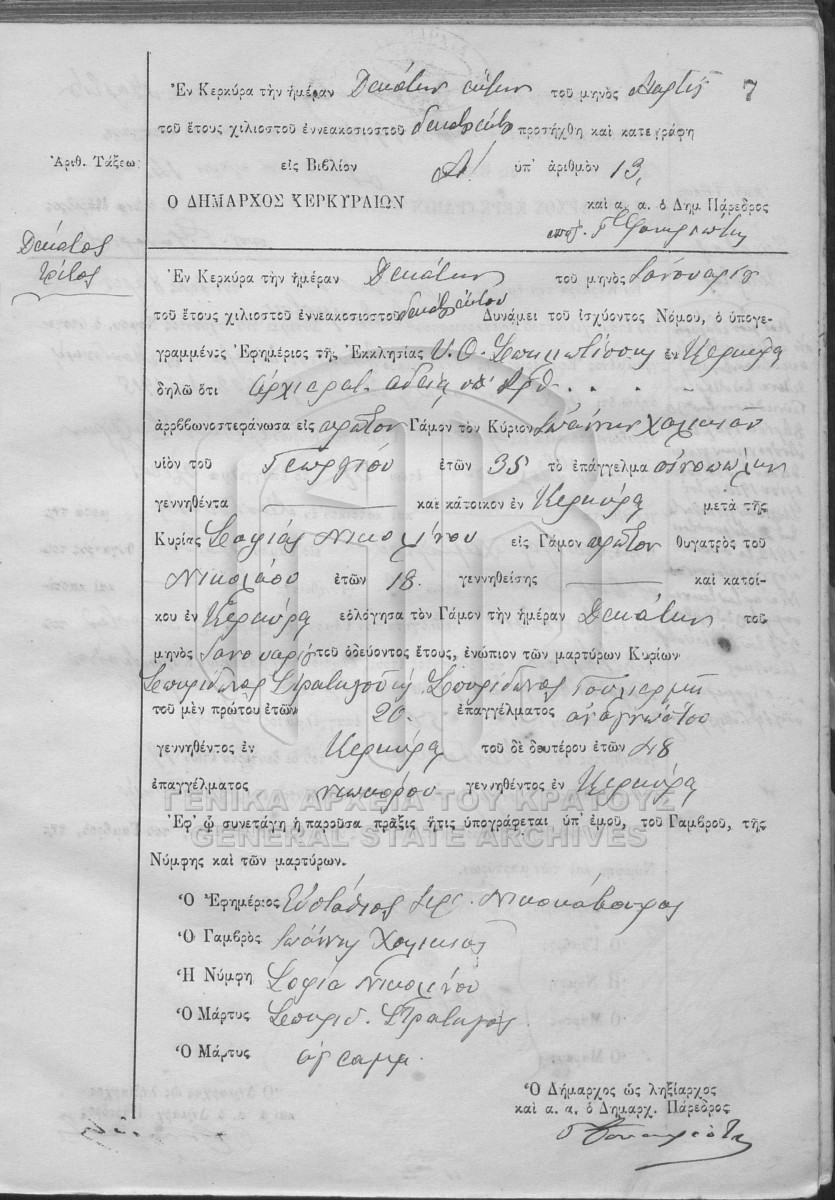 7
Ἐν Κερκύρᾳ τὴν ἡμέραν Δεκάτην τοῦ μηνὸς
τοῦ ἔτους χιλιοστοῦ ἐννεακοσιοστοῦ προσήχθη καὶ κατεγράφη
Ἀριθ. Τάξεω; εἰς Βιβλίον Α! ὑπ' ἀριθμὸν 13,
Ο ΔΗΜΑΡΧΟΣ ΚΕΡΚΥΡΑΙΩΝ καὶ α. α. ὁ Δημ. Πάρεδρος
Δέκατος
τρίτος
Ἐν Κερκύρᾳ τὴν ἡμέραν Δεκάτην τοῦ μηνὸς Ἰανουαρίου
τοῦ ἔτους χιλιοστοῦ ἐννεακοσιοστοῦ Δυνάμει τοῦ ἰσχύοντος Νόμου, ὁ ὑπογε-
γραμμένος Ἐφημέριος τῆς Ἐκκλησίας Υ. Θ. Σπηλιωτίσσης ἐν Κερκύρᾳ
δηλῶ ὅτι ἀρχιερατ. ἀδείᾳ ὑπ' Ἀρθ.
ἀρρβωνοστεφάνωσα εἰς πρῶτον Γάμον τὸν Κύριον Ἰωάννην
υἱὸν τοῦ Γεωργίου ἐτῶν 35 τὸ ἐπάγγελμα οἰνοπώλην
γεννηθέντα καὶ κάτοικον ἐν Κερκύρᾳ μετὰ τῆς
Κυρίας Σοφίας Νικολίνου εἰς Γάμον πρῶτον θυγατρὸς τοῦ
Νικολάου ἐτῶν 18. γεννηθείσης καὶ κατοί-
κου ἐν Κερκύρᾳ εὐλόγησα τὸν Γάμον τὴν ἡμέραν Δεκάτην τοῦ
μηνὸς Ἰανουαρίου τοῦ ὁδεύοντος ἔτους, ἐνώπιον τῶν μαρτύρων Κυρίων
Σπυρίδωνος Στρατηγοῦ Σπυρίδωνος
τοῦ μὲν πρώτου ἐτῶν 20. ἐπαγγέλματος ἀναγνώστου
γεννηθέντος ἐν Κερκύρᾳ τοῦ δὲ δευτέρου ἐτῶν 48
ἐπαγγέλματος γεννηθέντος ἐν Κερκύρᾳ
ΓΕΝΙΚΑ ΑΡΧΕΙΑ ΤΟΥ ΚΡΑΤΟΥΣ
Ἐφ' ᾧ συνετάγη ἡ παροῦσα πρᾶξις ἥτις ὑπογράφεται ὑπ' ἐμοῦ, τοῦ Γαμβροῦ, τῆς
GENERAL STATE ARCHIVES
Νύμφης καὶ τῶν μαρτύρων.
Ὁ Ἐφημέριος Εὐστάθιος Ἱερ.
Ὁ Γαμβρὸς Ἰωάννης
Ἡ Νύμφη Σοφία Νικολίνου
Ὁ Μάρτυς Σπυρίδ. Στρατηγός
Ὁ Μάρτυς ἀγραμμ.
Ὁ Δήμαρχος ὡς ληξίαρχος
καὶ α. α. ὁ Δημαρχ. Πάρεδρος